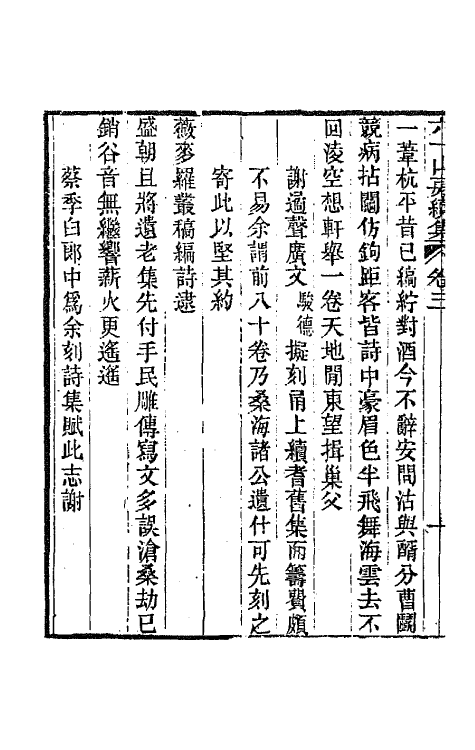 六一山房續集 卷三 十
一葦杭平昔已縞紵對酒今不辭安問沽與醑分曹鬬
競病拈鬮仿鉤距客皆詩中豪眉色半飛舞海雲去不
回淩空想軒舉一卷天地閒東望揖巢父
謝逈聲廣文駿德擬刻甬上續耆舊集而籌費頗
不易余謂前八十卷乃桑海諸公遺什可先刻之
寄此以堅其約
薇麥羅叢稿編詩逮
盛朝且將遺老集先付手民雕傳寫文多誤滄桑劫已
銷谷音無繼響薪火更遙遙
蔡季白郎中爲余刻詩集賦此志謝